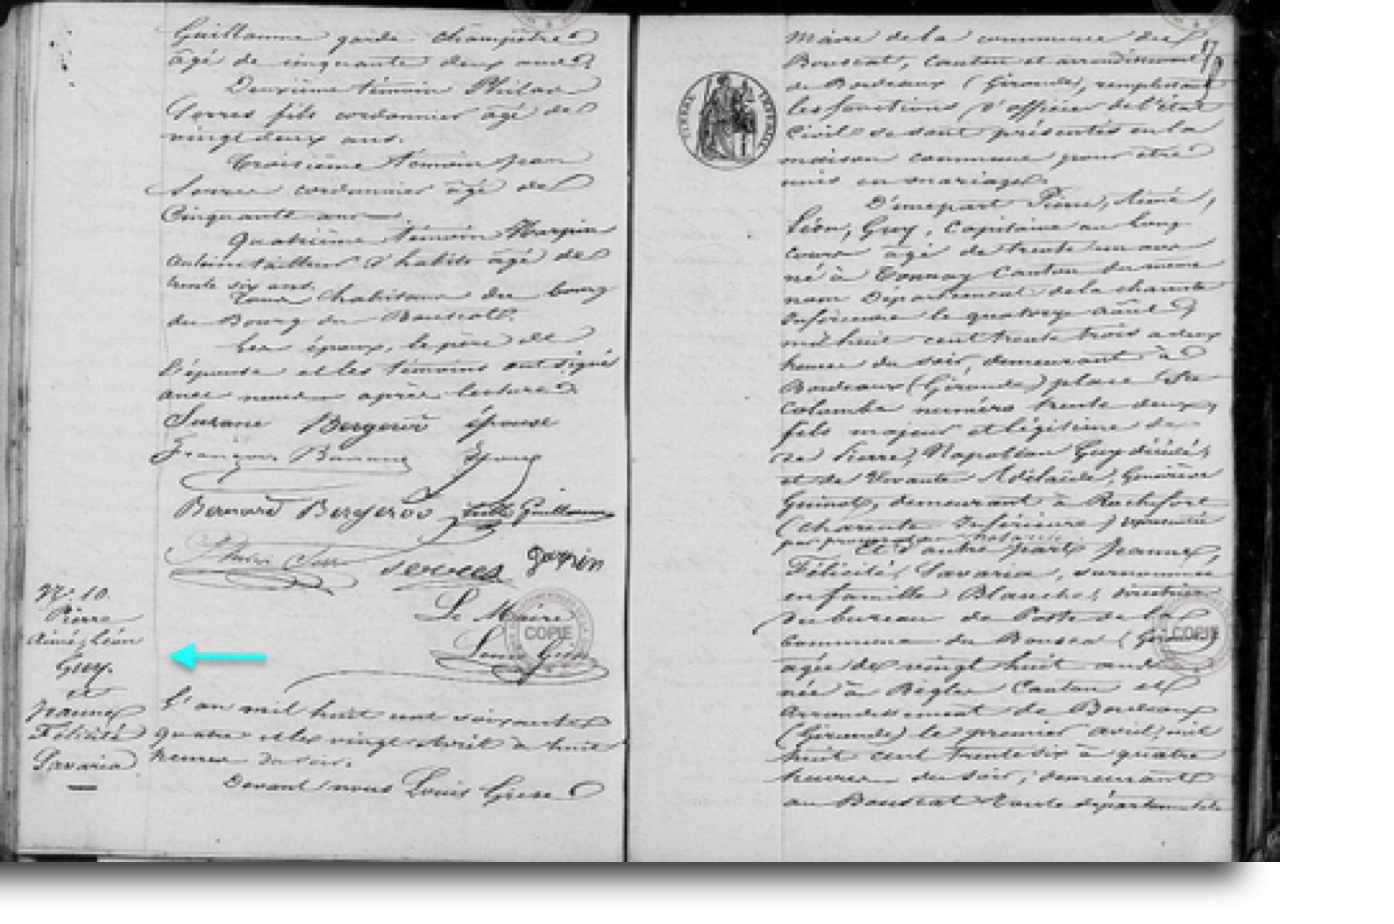 Guillaume garde champêtre
âgé de cinquante deux ans.
Deuxième témoin
fils cordonnier âgé de
vingt deux ans.
Troisième témoin Jean
cordonnier âgé de
Cinquante ans
Quatrième témoin
tailleur d'habits âgé de
trente six ans.
Tous habitans du bourg
du Bourg du Bouscat.
Les époux, le père de
l'épouse et les témoins ont signé
avec nous après lecture
Suzane Bergeron épouse
François
Bernard
Serres
Le Maire
Louis
COPIE
N°. 10.
Pierre
Aimé, Léon
Guy.
et
Jeanne
Félicité
Savaria
L'an mil huit cent soixante
quatre et le vingt Avril à huit
heures du soir.
Devant nous Louis
maire de la commune du
Bouscat, Canton et arrondissement
de Bordeaux (Gironde), remplissant
les fonctions d'officier de l'état
Civil se sont présentés en la
maison commune pour être
unis en mariage.
D'une part Pierre, Aimé,
Léon, Guy, Capitaine au long
cours âgé de trente un ans
né à Tonnay Canton du même
nom Département de la charente
Inférieure le quatorze août
mil huit cent trente trois a deux
heures du soir, demeurant à
Bordeaux (Gironde) place Ste
Colombe numéro trente deux,
fils majeur et légitime de
de Pierre, Napoléon Guy décédé,
et de Adélaïde,
demeurant à Rochefort
(Charente Inférieure)
par procuration notariée
Et d'autre part Jeanne,
Félicité, Savaria, surnommée
en famille Blanche, directrice
du bureau de Poste de la
Commune du Bouscat
COPIE
agée de vingt huit ans
née à Bègles Canton et
Arrondissement de Bordeaux
(Gironde) le premier avril mil
huit cent trente six à quatre
heures du soir, demeurant
au Bouscat Route départementale